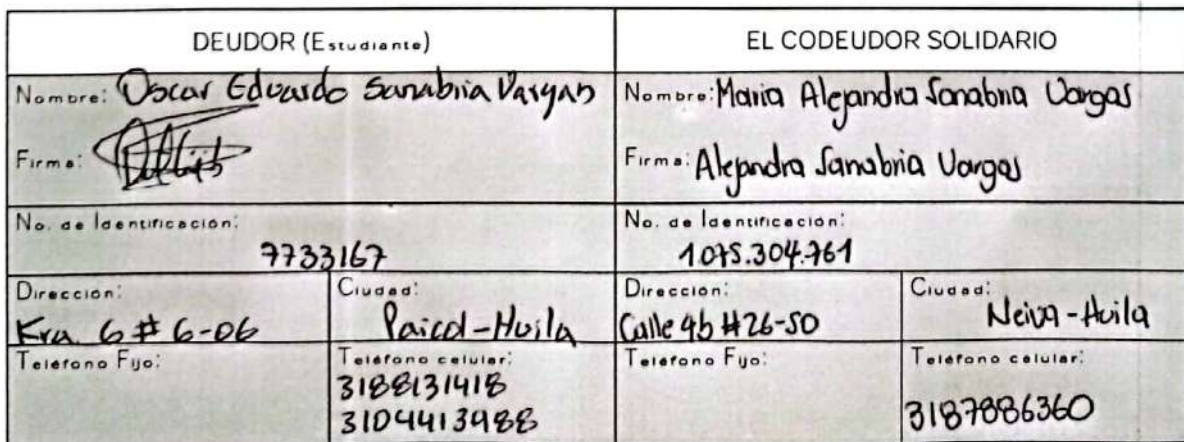 DEUDOR (Estudiante)
EL CODEUDOR SOLIDARIO
Nombre: Oscar Eduardo Sanabria Vargas
Nombre: Maria Alejandra Sanabria Vargas
Firma:
Firma: Alejandra Sanabria Vargas
No. de Identificación:
7733167
No. de Identificación:
1.075.304.761
Dirección:
Kra. 6 # 6-06
Ciudad:
Paicol-Huila
Dirección:
Calle 4b #26-50
Ciudad:
Neiva-Huila
Teléfono Fijo:
Teléfono celular:
3188131418
3104413988
Teléfono Fijo:
Teléfono celular:
3187886360